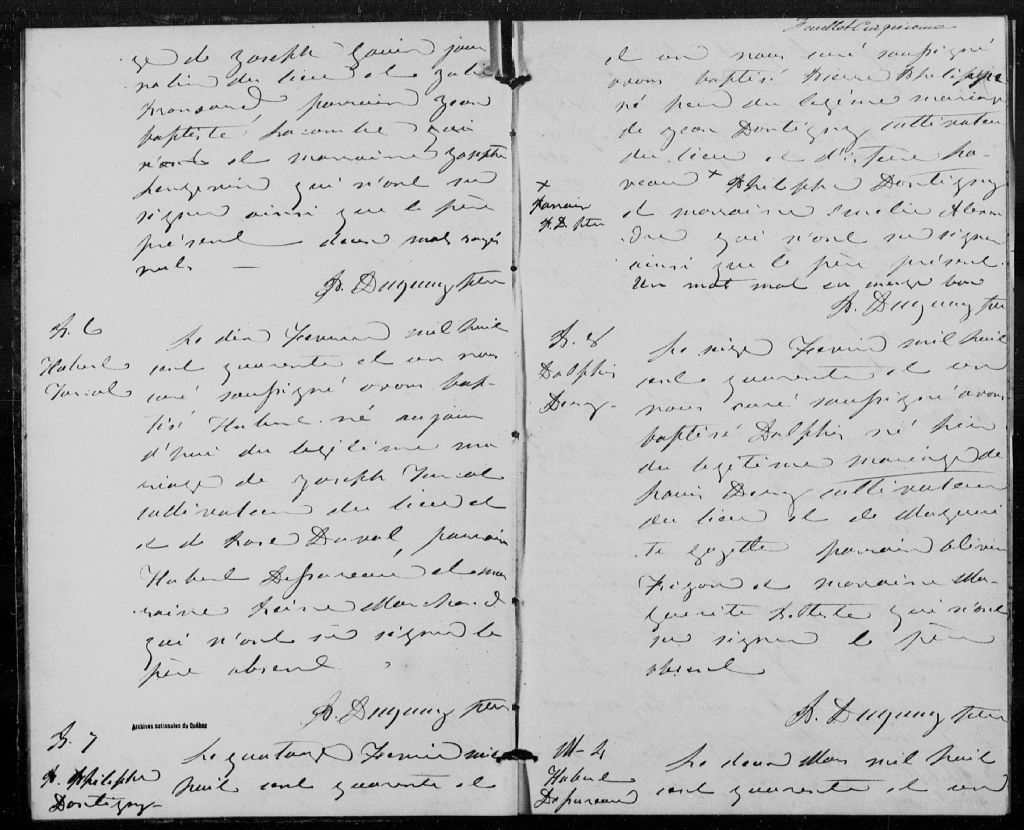 ge de Joseph Gouin jour
nalier du lieu et
Bronsard parrain Jean
baptiste Lacombe qui
et marraine Josephte
qui n'ont su
signer ainsi que le père
présent deux mots rayés
nuls —
B. Duguay ptre
B. 6
Hubert
Turcot
Le dix Fevrier mil huit
cent quarente et un nous
curé soussigné avons bap-
tisé Hubert né aujour
d'hui du legitime ma
riage de Joseph Turcot
cultivateur du lieu et
et de Rose Duval, parrain
Hubert Defuneau et mar
raine Reine Marchand
qui n'ont su signer le
père absent
B. Duguay ptre
Archives nationales du Québec
B. 7
P. Philippe
Dontigny
Le quatorze Fevrier mil
huit cent quarente et
Feuillet Cinquieme
un nous curé soussigné
avons baptisé Pierre Philippe
né hier du legitime mariage
de Jean Dontigny cultivateur
du lieu et
veau x Philippe Dontigny
et marraine Emelie Alexan
dre qui n'ont su signer
ainsi que le père présent.
Un mot mot en marge bon
B. Duguay ptre
x
Parrain
B. D. ptre
B. 8
Dolphis
Le seize Fevrier mil huit
cent quarente et un
nous curé soussigné avons
baptisé Dolphis né hier
du legitime mariage de
Louis cultivateur
du lieu et de Margueri
te Gazette parrain Olivier
Frigon et marraine Mar
guerite qui n'ont
su signer le père
absent
B. Duguay ptre
M - 4
Hubert
Le deux Mars mil huit
cent quarente et un